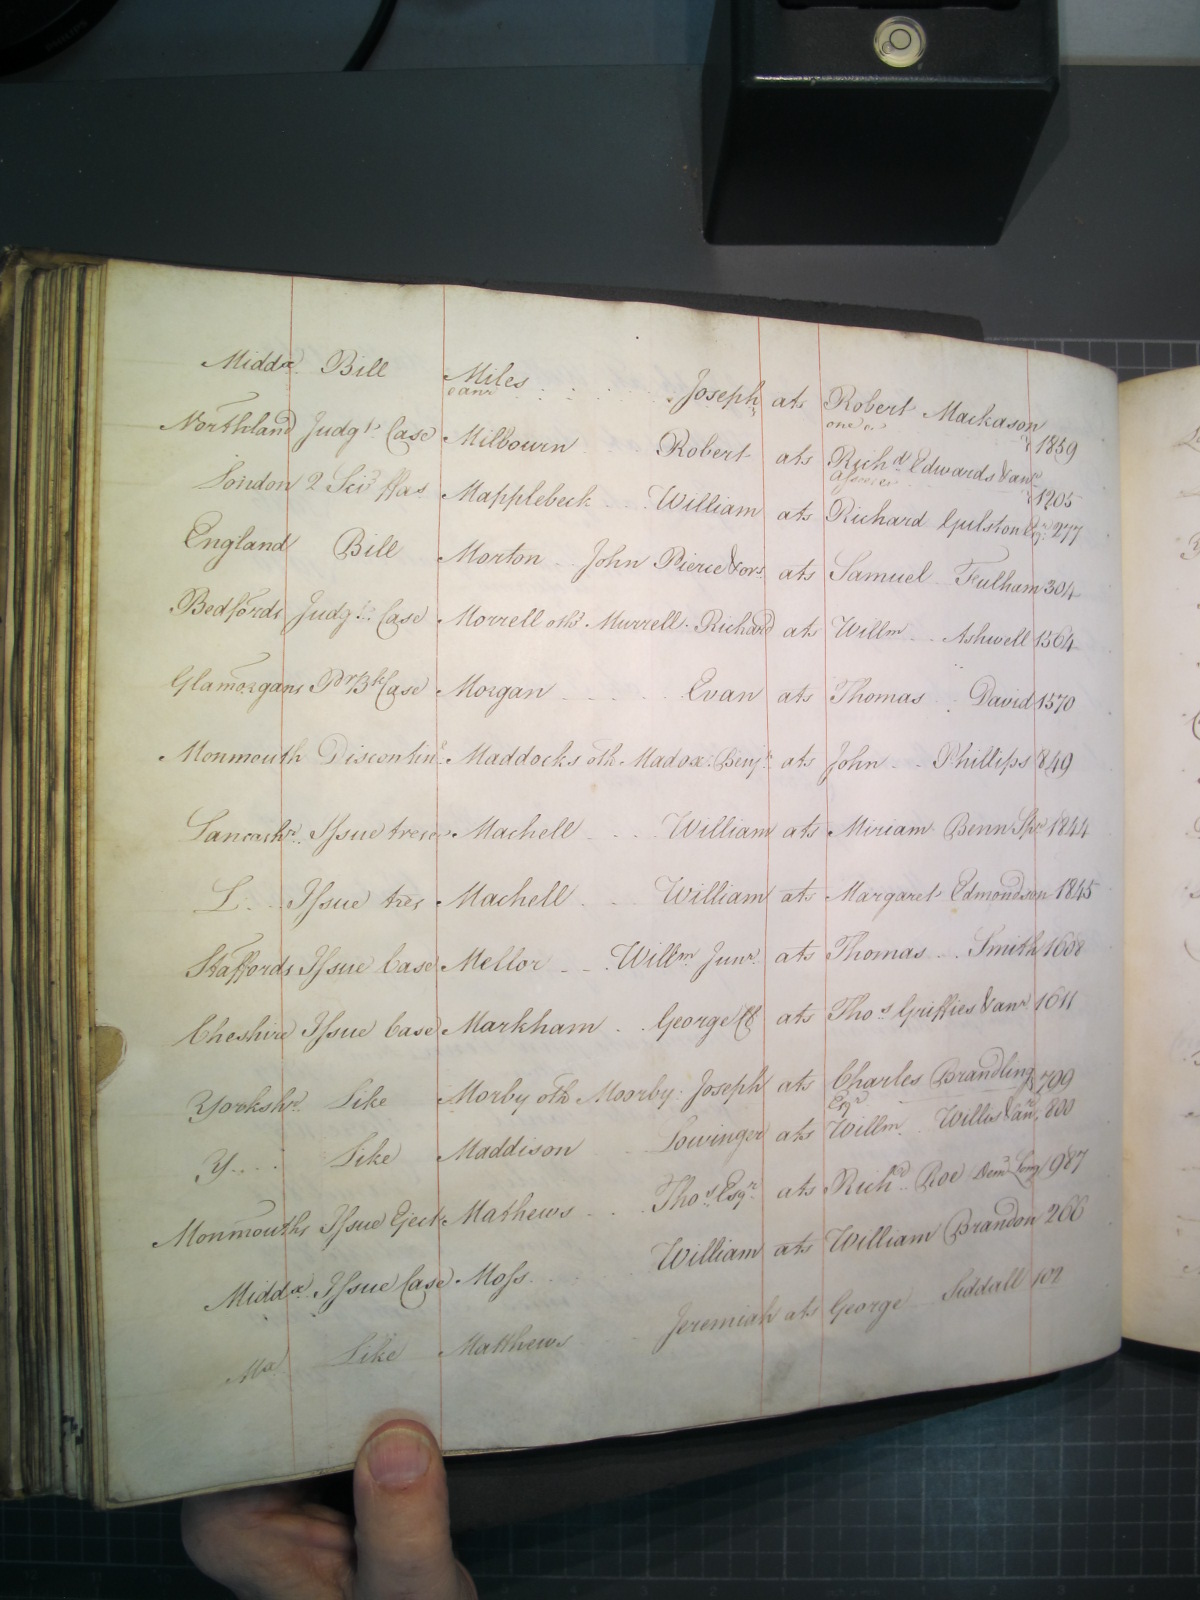 Middx. Bill Miles Joseph ats Robert Mackason 1859
& anr one &c
Northland Judgt. Case Milbourn Robert ats Richd Edwards & anr 1205
London 2 Sci ffas Mapplebeck William ats Richard Gulston Esqr. 277
England Bill Morton John Pierce & ors ats Samuel Fulham 304
Bedfords Judgt. Case Morrell oths Murrell Richard ats Willm Ashwell 1564
Glamorgans Pr Bk Case Morgan Evan ats Thomas David 1570
Monmouth Discontince Maddocks oth Madox Benjn ats John Phillips 849
Lancashr. Issue tres Machell William ats Miriam Benn Spr 1844
L Issue tres Machell William ats Margaret Edmondson 1845
Staffords Issue Case Mellor Willm Junr. ats Thomas Smith 1608
Cheshire Issue Case Markham George ats Thos Griffies & anr 1611
Yorkshr. Like Morby oth Moorby Joseph ats Charles Brandling Esqr 799
Y Like Maddison Lowinger ats Willm Willis & anr 800
Monmouths Issue Eject Mathews Thos Esqr. ats Richd. Roe Dem Long 987
Middx. Issue Case Moss William ats William Brandon 266
Mx Like Matthews Jeremiah ats George Siddall 102